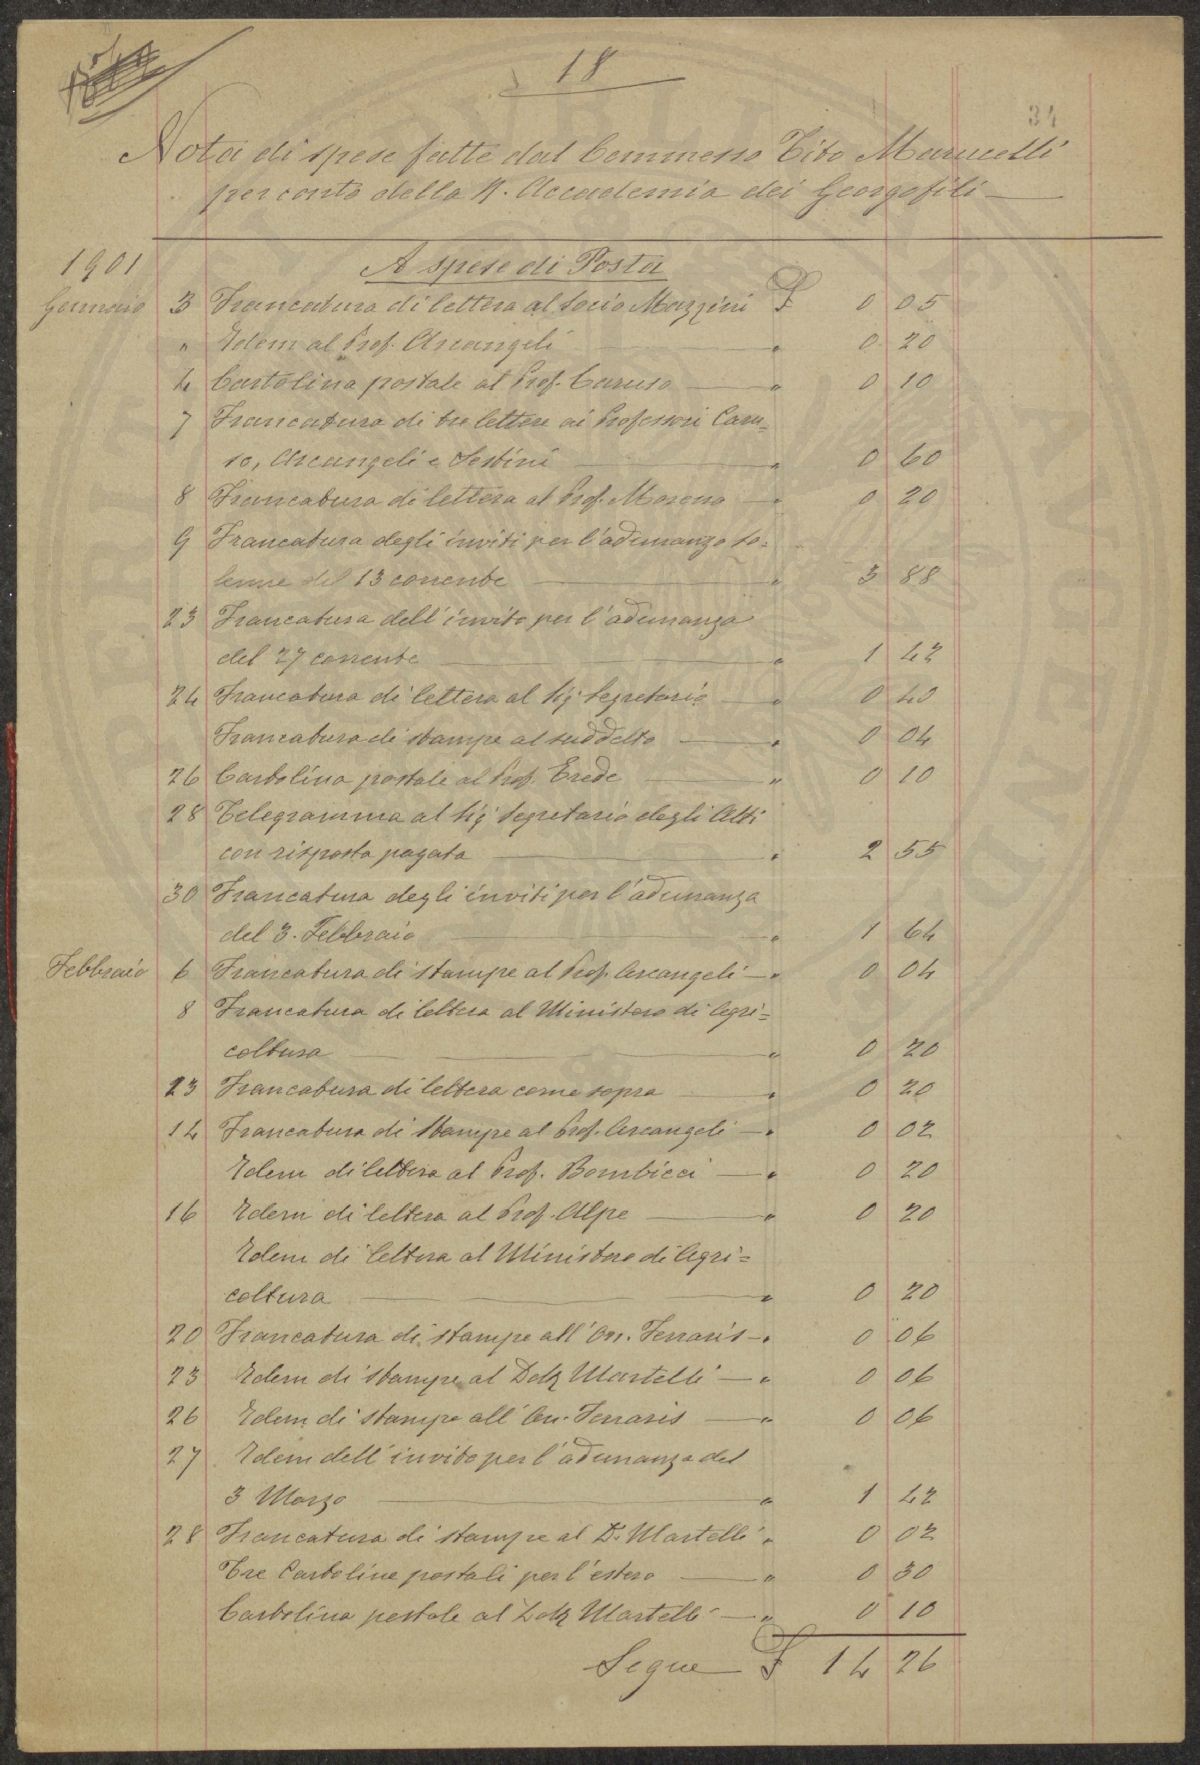 18
34
Nota di spese fatte dal Commesso Tito Marucelli
per conto della R. Accademia dei Georgofili
1901 A spese di Posta
Gennaio 3 Francatura di lettera al Socio Mazzini £ 0 05
" Idem al Prof. Arcangeli " 0 20
4 Cartolina postale al Prof. Caruso " 0 10
7 Francatura di tre lettere ai Professori Caru=
so, Arcangeli e Sestini " 0 60
8 Francatura di lettera al Prof. Moreno " 0 20
9 Francatura degli inviti per l'adunanza so=
lenne del 13 corrente " 3 88
23 Francatura dell'invito per l'adunanza
del 27 corrente " 1 42
24 Francatura di lettera al Sig. Segretario " 0 40
Francatura di stampe al suddetto " 0 04
26 Cartolina postale al Prof. Erede " 0 10
28 Telegramma al Sig. Segretario degli Atti
con risposta pagata " 2 55
30 Francatura degli inviti per l'adunanza
del 3. Febbraio " 1 64
Febbraio 6 Francatura di stampe al Prof. Arcangeli " 0 04
8 Francatura di lettera al Ministero di Agri=
coltura " 0 20
13 Francatura di lettera come sopra " 0 20
14 Francatura di stampe al Prof. Arcangeli " 0 02
Idem di lettera al Prof. Bombicci " 0 20
16 Idem di lettera al Prof. Alpe " 0 20
Idem di lettera al Ministero di Agri=
coltura " 0 20
20 Francatura di stampe all'On. Ferraris " 0 06
23 Idem di stampe al Dott. Martelli " 0 06
26 Idem di stampe all'On. Ferraris " 0 06
27 Idem dell'invito per l'adunanza del
3 Marzo " 1 42
28 Francatura di stampe al D. Martelli " 0 02
Tre Cartoline postali per l'estero " 0 30
Cartolina postale al Dott. Martelli " 0 10
Segue £ 14 26